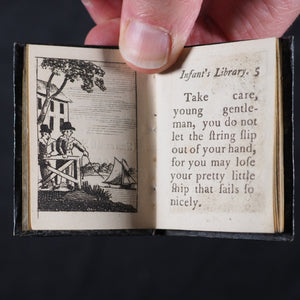 Infant's Library. 5
Take care,
young gentle-
man, you do not
let the ſtring ſlip
out of your hand,
for you may loſe
your pretty little
ſhip that ſails ſo
nicely.